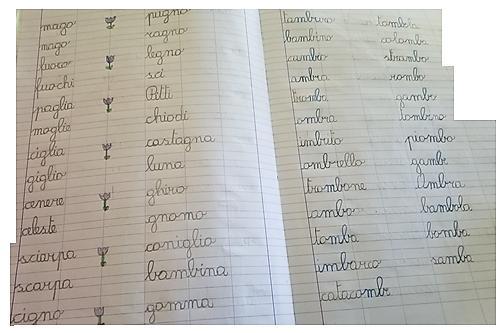 mago pugno
mago ragno
fuoco legno
fuochi sci
paglia Pitti
maglie chiodi
ciglia castagna
giglio luna
cenere ghiro
celeste gnomo
sciarpa coniglio
scarpa bambina
cigno gomma
tamburo tombola
bambino colomba
strambo
ambra rombo
tromba gambe
ombra lombino
imbuto piombo
ombrello gambe
trombone Ambra
ambo bambola
tomba bomba
imbarco samba
catacombe